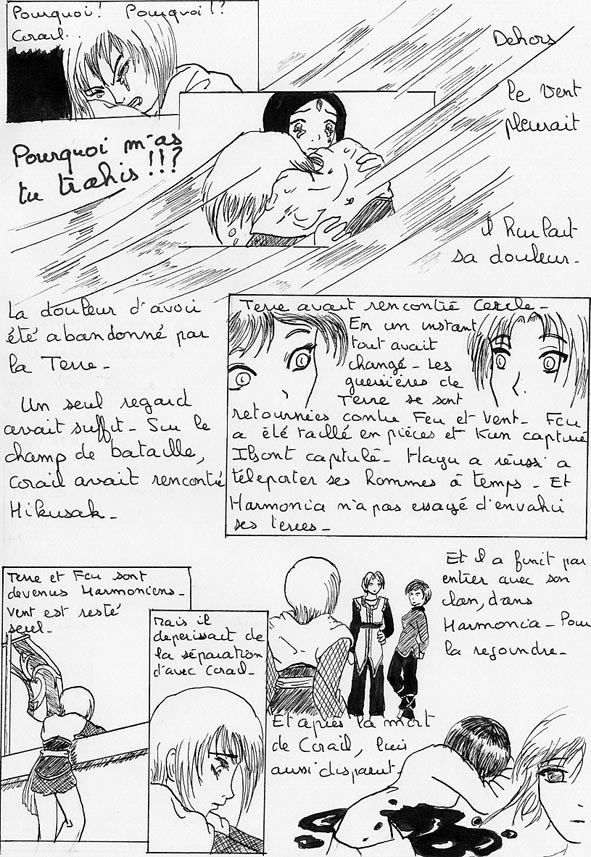 Pourquoi! Pourquoi!?
Corail..
Pourquoi m'as
tu trahis!!?
Dehors
le vent
pleurait
il hurlait
sa douleur.
La douleur d'avoir
été abandonné par
la Terre.
Un seul regard
avait suffit. Sur le
champ de bataille,
Corail avait rencontré
Hikusak.
Terre avait rencontré Cercle.
En un instant
tout avait
changé. Les
guerrières de
Terre se sont
retournées contre Feu et Vent. Feu
a été taillé en pièces et Kun capturé
Ils ont capitulé. Hazu a réussi a
téléporter ses hommes à temps. Et
Harmonia n'a pas essayé d'envahir
ses terres.
Terre et Feu sont
devenus Harmoniens.
Vent est resté
seul.
Mais il
dépérissait de
la séparation
d'avec Corail.
Et il a finit par
entrer avec son
clan, dans
Harmonia. Pour
la rejoindre.
Et après la mort
de Corail, lui
aussi disparut.